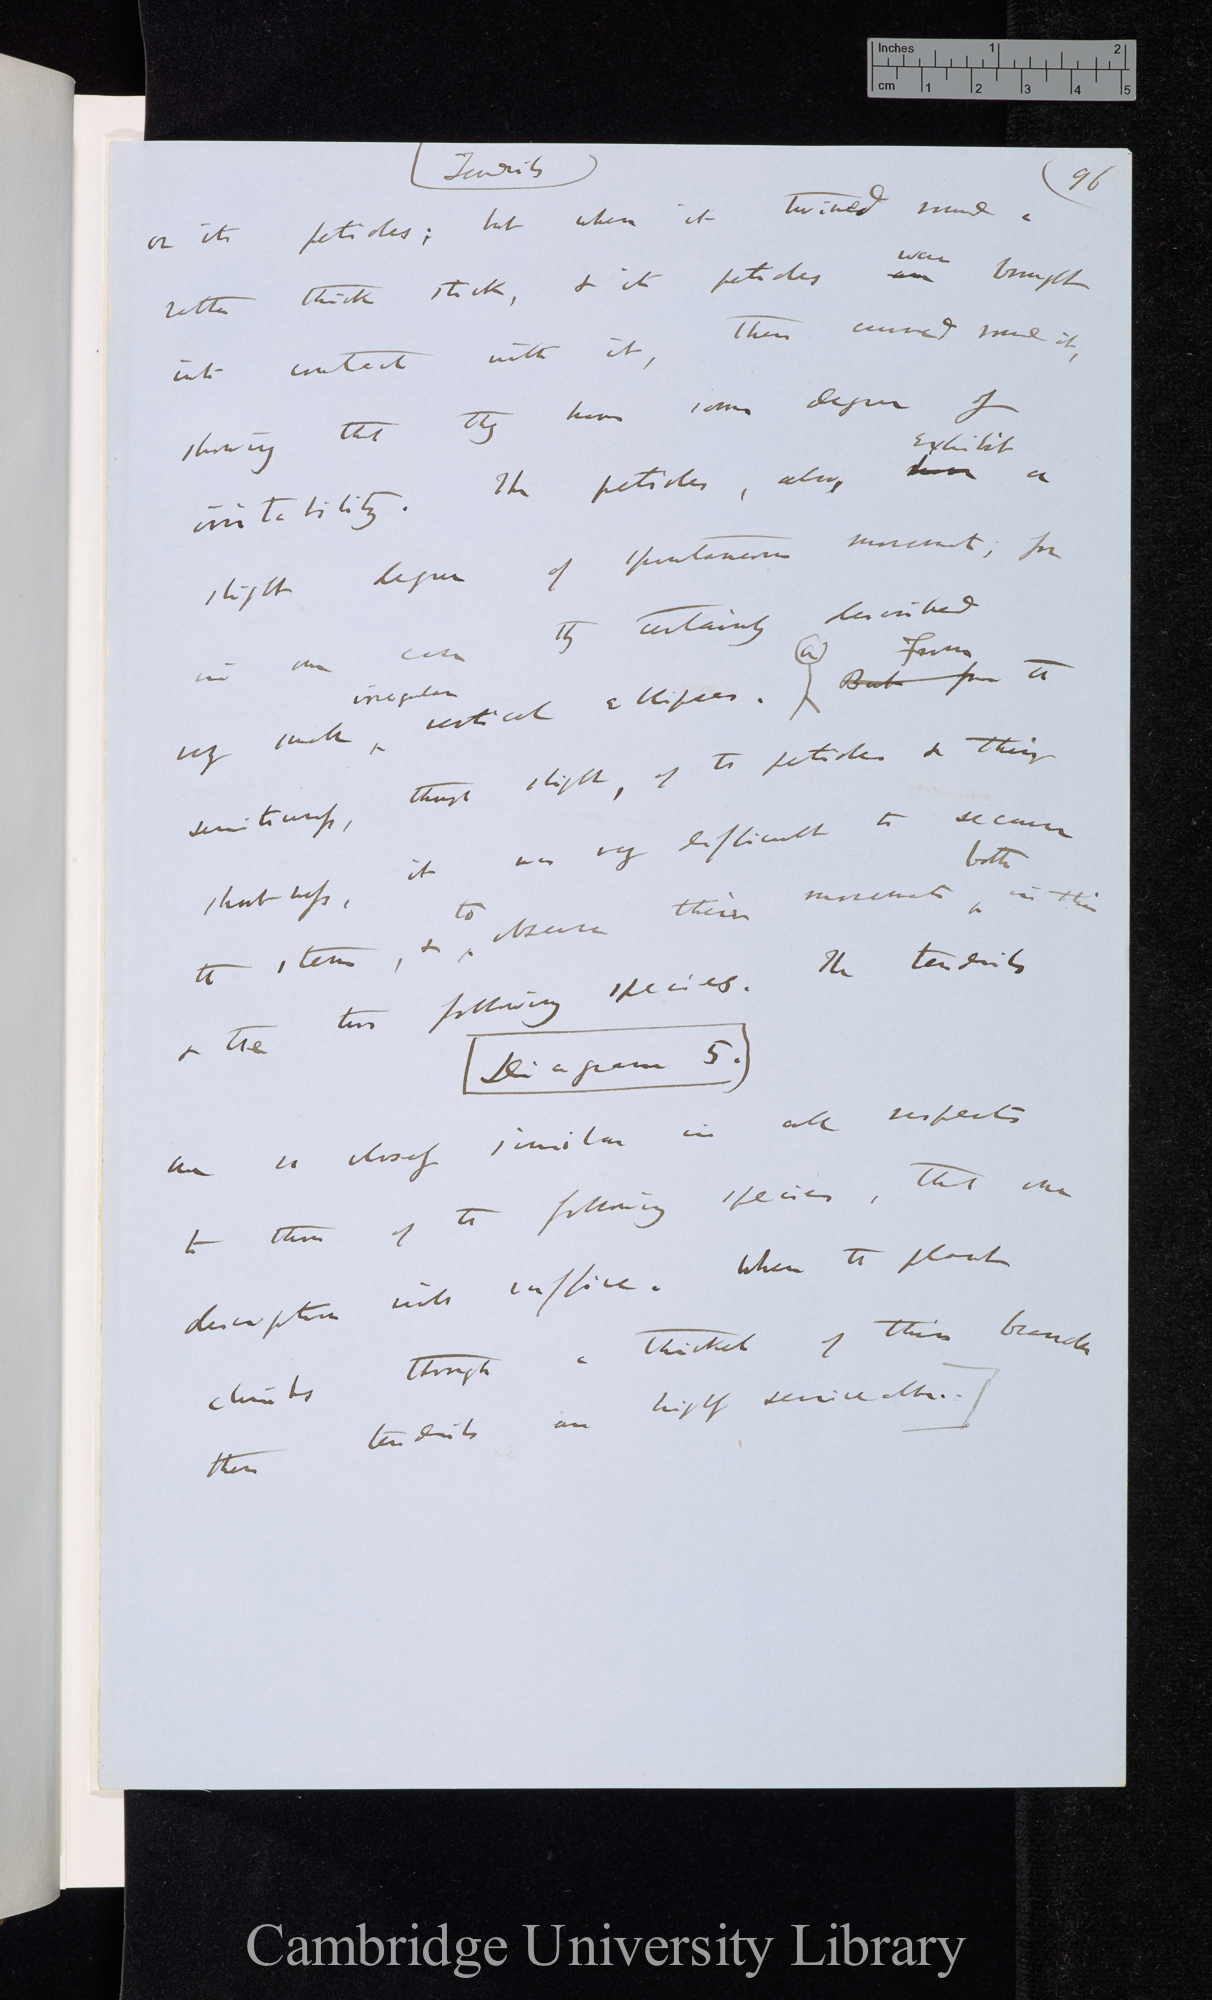 Inches 1 2
cm 1 2 3 4 5
(Tendrils)
(96
or its petioles; but when it twined round a
rather thick stick, & its petioles are were brought
into contact with it, these curved round it,
showing that they have some degree of
irritability. The petioles, also, have exhibit a
slight degree of spontaneous movement; for
in one case they certainly described
very small irregular vertical ellipses. (a) But from From the
sensitiveness, though slight, of the petioles & their
shortness, it was very difficult to secure
the stem, & to observe their movements both in this
& the two following species. The tendrils
[Diagram 5.)
are so closely similar in all respects
to those of the following species, that one
description will suffice. When the plant
climbs through a thicket of thin branches
these tendrils are highly serviceable.]
Cambridge University Library